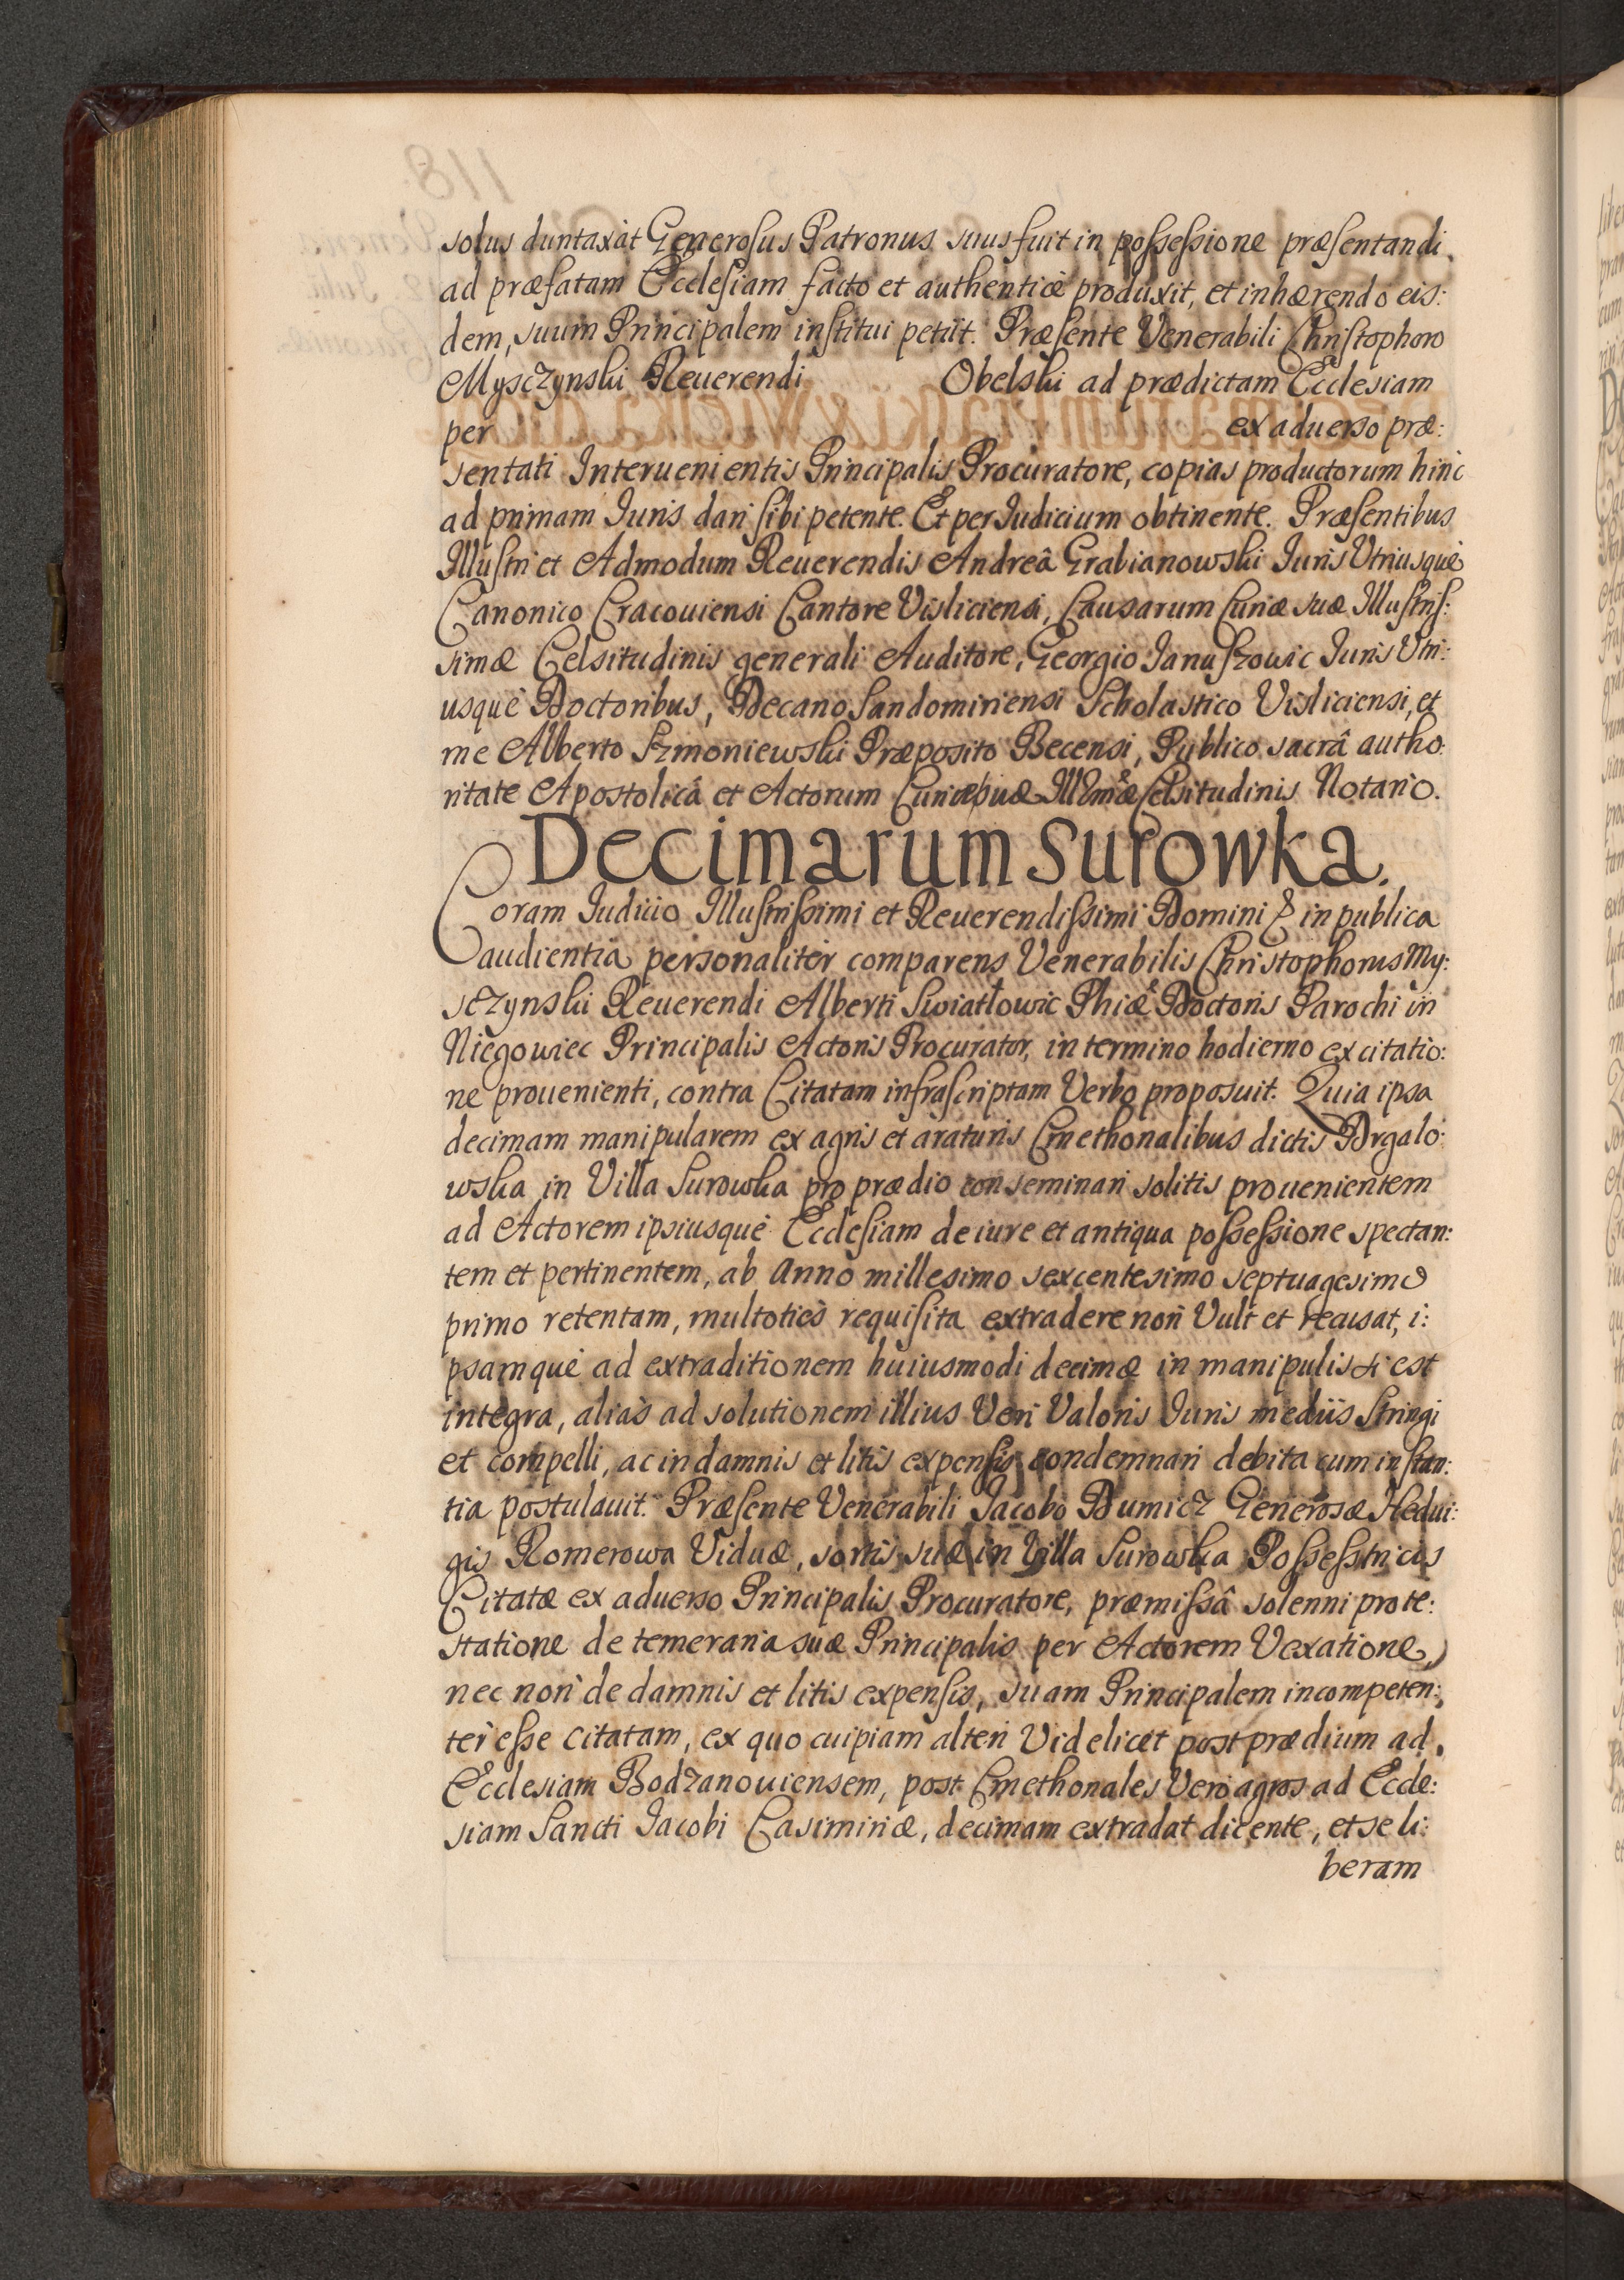 solus duntaxàt Generosus Patronus suus fuit in possessione præsentandi
ad præfatam Ecclesiam facto et authenticè produxit, et inhærendo eis:
dem, suum Principalem institui petiit. Præsente Venerabili Christophoro
Mysczynski Reuerendi Obelski ad prædictam Ecclesiam
per ex aduerso præ:
sentati Interuenientis Principalis Procuratore, copias productorum hinc
ad primam Iuris dari sibi petente. Et per Iudicium obtinente. Præsentibus
Illustri et Admodum Reuerendis Andreâ Grabianowski Iuris Utriusquè
Canonico Cracouiensi Cantore Visliciensi, Causarum Curiæ suæ Illustris:
simæ Celsitudinis generali Auditore, Georgio Ianuszowic Iuris Utri:
usquè Doctoribus, Decano Sandomiriensi Scholastico Visliciensi, et
me Alberto Szmoniewski Præposito Becensi, Publico sacrâ autho:
ritate Apostolicâ et Actorum Curiæ suæ Illmæ Celsitudinis Notario.
Decimarum Surowka.
Coram Iudicio Illustrissimi et Reuerendissimi Domini & in publica
audientia personalitèr comparens Venerabilis Christophorus My:
sczynski Reuerendi Alberti Swiatłowic Phiæ Doctoris Parochi in
Niegowiec Principalis Actoris Procurator, in termino hodierno ex citatio:
ne prouenienti, contra Citatam infrascriptam Verbo proposuit. Quia ipsa
decimam manipularem ex agris et araturis Cmethonalibus dictis Drgalo:
wska in Villa Surowka pro prædio conseminari solitis prouenientem
ad Actorem ipsiusquè Ecclesiam de iure et antiqua possessione spectan:
tem et pertinentem, ab Anno millesimo sexcentesimo septuagesimo
primo retentam, multotiès requisita extradere non Vult et recusat, i:
psamquè ad extraditionem huiusmodi decimæ in manipulis si est
integra, aliàs ad solutionem illius Veri Valoris Iuris mediis Stringi
et compelli, ac in damnis et litis expensis condemnari debita cum instan:
tia postulauit. Præsente Venerabili Jacobo Dumicz Generosæ Hedui:
gis Romerowa Viduæ, sortis suæ in Villa Surowka Possesstricis
Citatæ ex aduerso Principalis Procuratore, præmissâ solenni prote:
statione de temeraria suæ Principalis per Actorem Vexatione,
nec non de damnis et litis expensis, suam Principalem incompeten:
tèr esse citatam, ex quo cuipiam alteri Videlicet post prædium ad
Ecclesiam Bodzanouiensem, post Cmethonales Verò agros ad Eccle:
siam Sancti Jacobi Casimiriæ, decimam extradat dicente, et se li:
beram